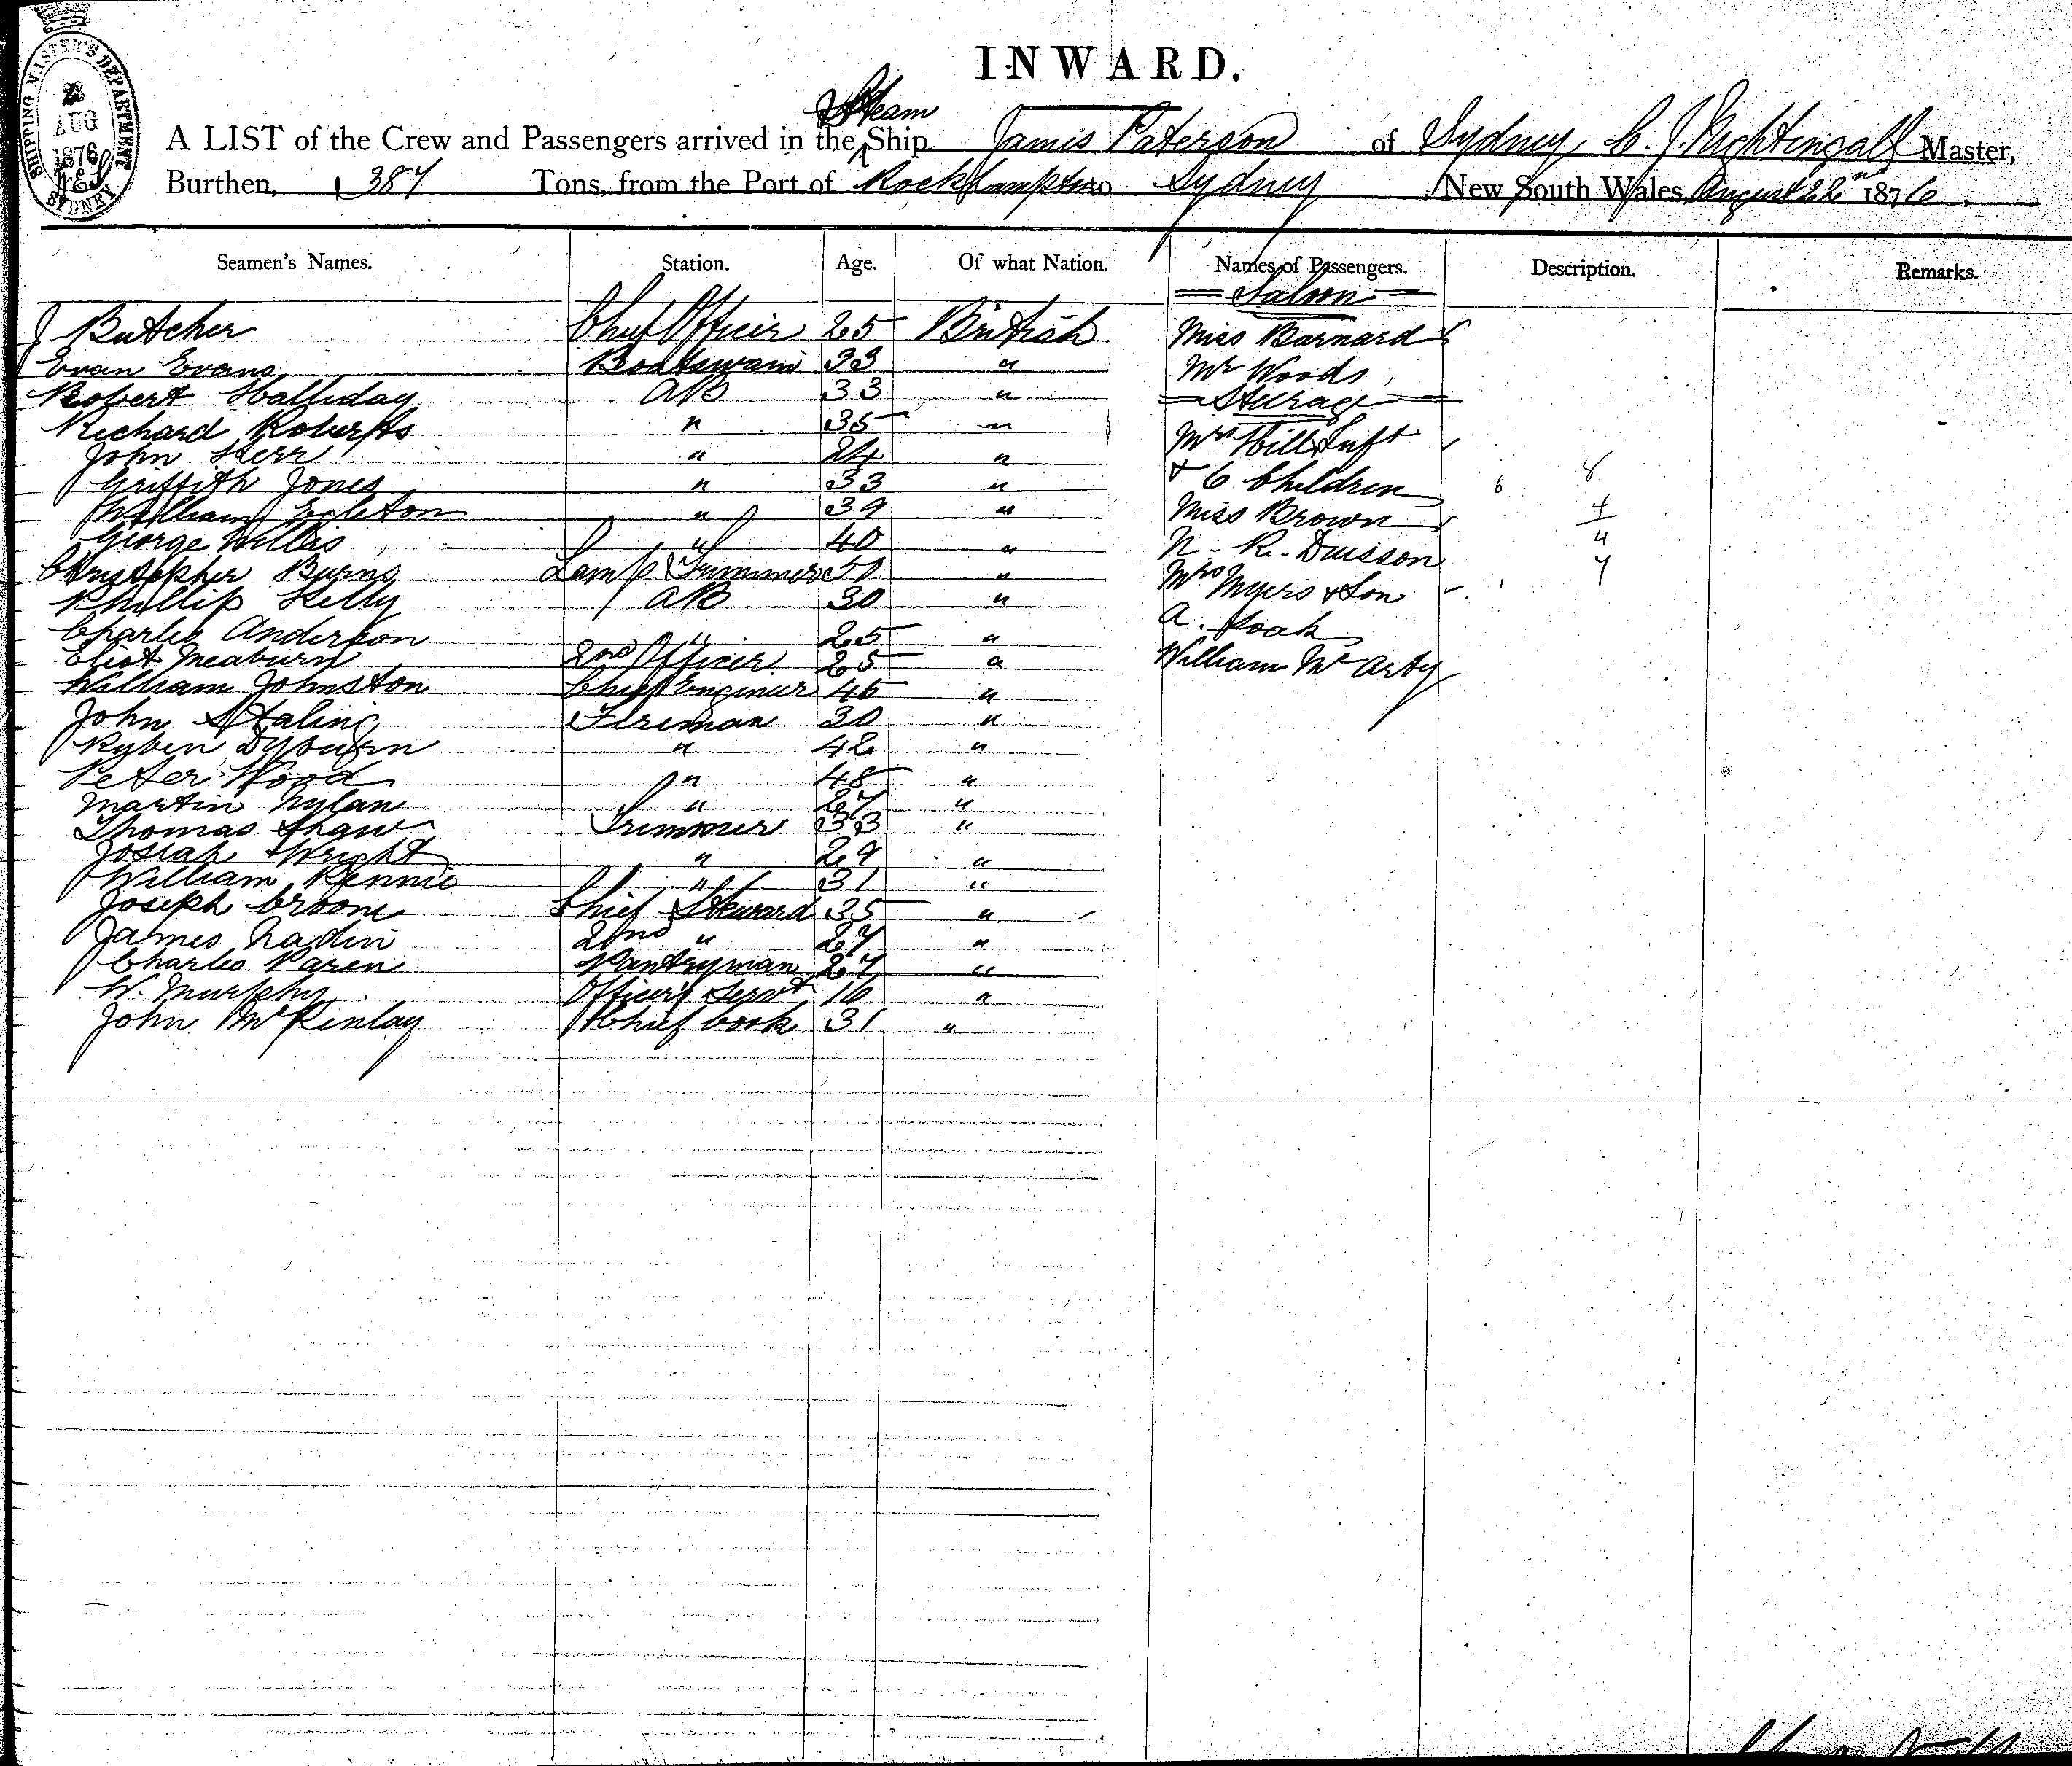 INWARD.
SHIPPING MASTER'S DEPARTMENT
AUG
1876
SYDNEY
Steam
A LIST of the Crew and Passengers arrived in the Ship James Paterson of Sydney, C. J. Nightingall Master,
Burthen, 387 Tons, from the Port of Rockhampton to Sydney New South Wales, August 22nd 1876.
Seamen's Names. Station. Age. Of what Nation. Names of Passengers. Description. Remarks.
Saloon
J Butcher Chief Officer 25 British Miss Barnard
Evan Evans Boatswain 33 " Mr Woods
Robert Halliday AB 33 " Steerage
Richard Roberts " 35 " Mrs Hill
John Kerr " 24 " & 6 Children 6 8
Griffith Jones " 33 " Miss Brown 4
William Egleton " 39 " N. R. Duisson 4
George Willis " 40 " Mrs Myers & Son 7
Christopher Burns Lamp Trimmer 50 " A.
Phillip Kelly AB 30 " William McArty
Charles Anderson " 25 "
Eliot Meaburn 2nd Officer 25 "
William Johnston Chief Engineer 46 "
John Staling Fireman 30 "
Ryben Dyburn " 42 "
Peter Wood " 48 "
Martin Nylan " 27 "
Thomas Shaw Trimmer 33 "
Josiah Wright " 29 "
William Rennie " 31 "
Joseph Croome Chief Steward 35 "
James Nadin 2nd " 27 "
Charles Paren Pantryman 27 "
W. Murphy Officers Servt 16 "
John McKinlay Chief Cook 31 "